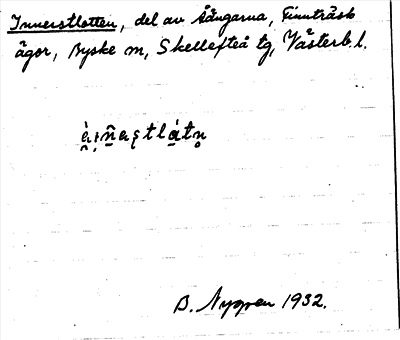 Innerstlotten, del av Långarna, Finnträsk
ägor, Byske sn, Skellefteå tg, Västerb. l.
B. Nygren 1932.